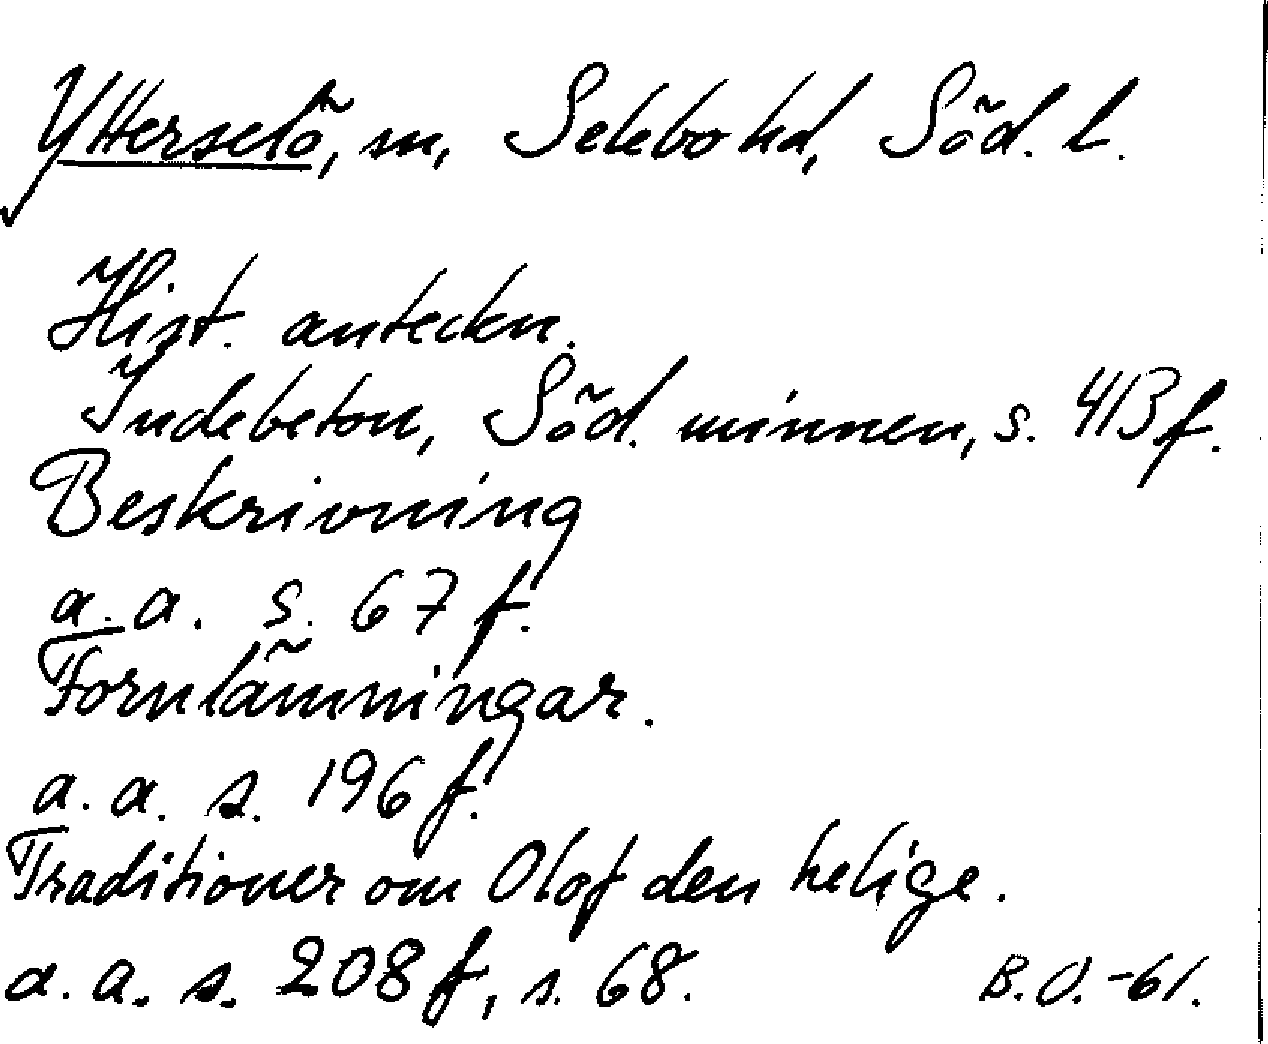 Ytterselö, sn, Selebo hd, Söd. l.
Hist. anteckn.
Indebetou, Söd. minnen, s. 413 f.
Beskrivning
a. a. s. 67 f.
Fornlämningar.
a. a. s. 196 f.
Traditioner om Olof den helige.
a. a. s. 208 f, s. 68.
B.O. -61.